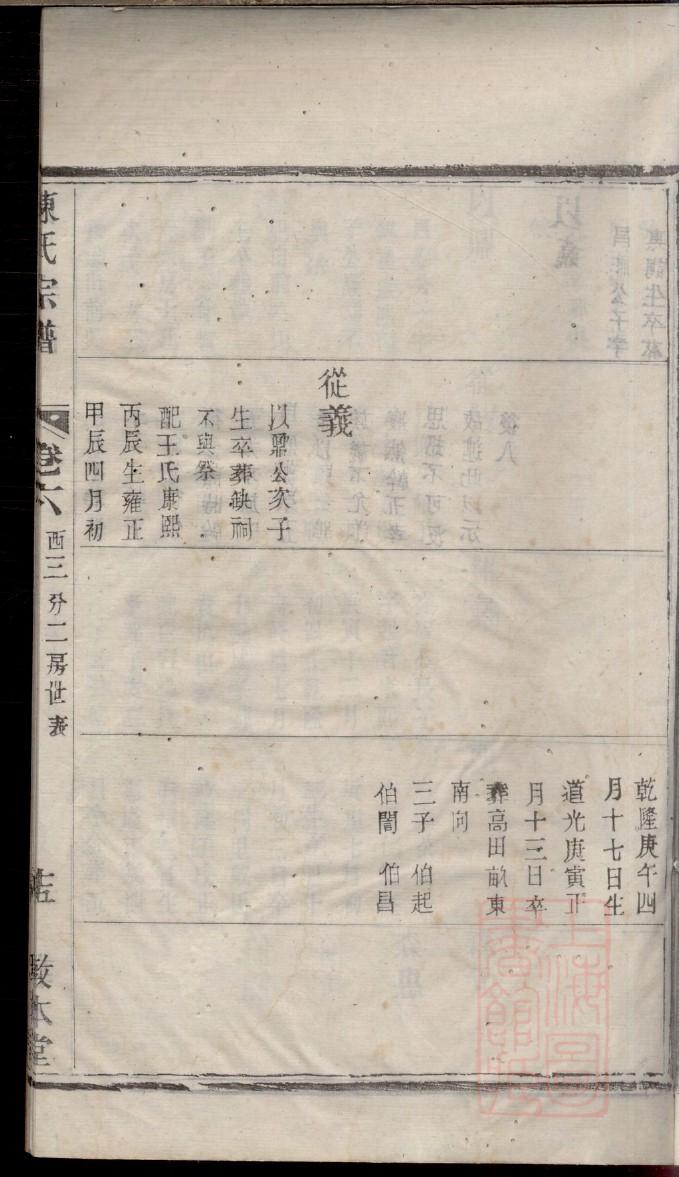 乾隆庚午四
月十七日生
道光庚寅正
月十三日卒
葬高田畝東
南向
三子 伯起
伯誾 伯昌
從義
以鼎公次子
生卒葬缺祠
不與祭
配王氏康熙
丙辰生雍正
甲辰四月初
陳氏宗譜 卷六 西三分二房世表 敦本堂
上海圖書館藏